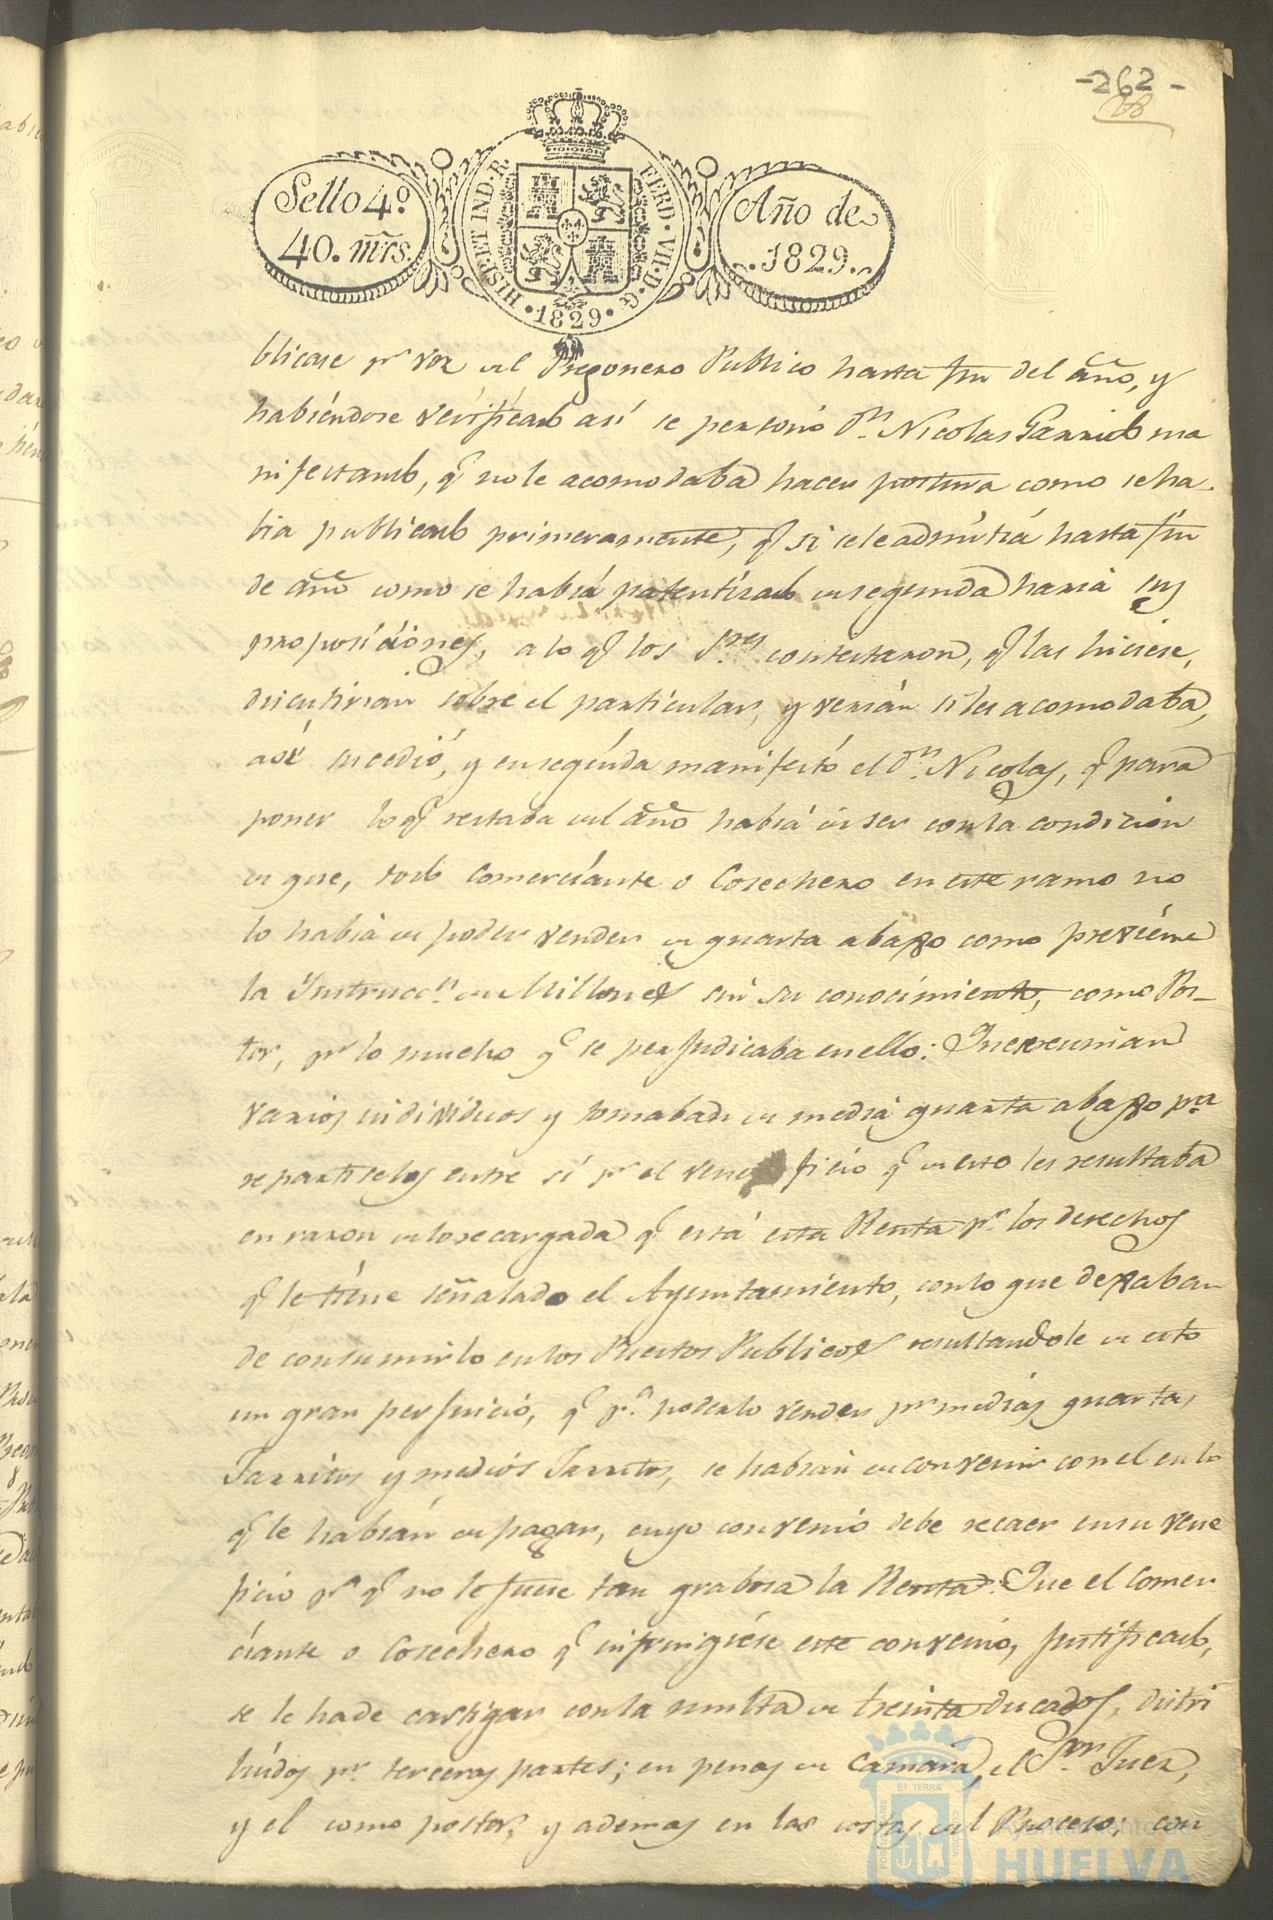 -262-
28
Sello 4º
40. mrs.
HISP. ET IND. R.
FERD. VII. D. G.
1829
Año de
1829.
blicase pr voz del Pregonero Publico hasta fin del año, y
habiéndose verificado así se personó Dn. Nicolas Garrido ma
nifestando, q no le acomodaba hacer postura como se ha-
bia publicado primeramente, q si se le admitiá hasta fin
de año como se habia patentisado en segunda haria sus
proposiciónes, a lo q los Sres. contestaron, q las hiciese,
discutirian sobre el particular, y verián si les acomodaba,
así sucedió, y en segúnda manifestó el Dn. Nicolas, q para
poner lo q restaba del año habiá de ser con la condicion
de que, todo Comerciánte o Cosechero en este ramo no
lo habiá de poder vender de quarta abaxo como previéne
la Instruccn. de Millones sin su conocimiento, como Pos-
tor, pr lo mucho q se perjudicaba en ello: Que reunian
varios individuos y tomaban de mediá quarta abaxo pa
repartirselos entre sí pr el veneficio q de esto les resultaba
en razon de lo recargada q está esta Renta pr. los derechos
q le tiene señalado el Ayuntamiento, con lo que dexaban
de consumirlo en los Puestos Publicos resultandole de esto
un gran perjuicio, q pa. poderlo vender pr mediás quartas,
Jarritos y medios Jarritos, se habian de convenir con el en lo
q le habián de pagar, cuyo convenio debe recaer en su vene
ficio pa q no le fuese tan grabosa la Renta: Que el Comer
ciánte o Cosechero q infringiése este convenio, justificado,
se le ha de castigar con la multa de treinta ducados, distri
buidos pr. terceras partes; en penas de Camara, el Sor. Juez,
y el como postor, y ademas en las costas del Proceso; con
ET TERRÆ
Ayuntamiento de
HUELVA